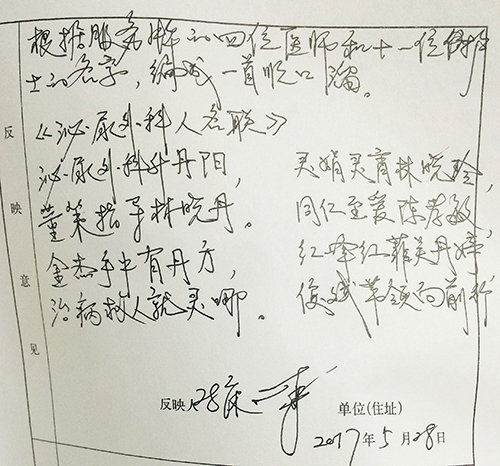 根据服务牌的四位医师和十一位
士的名字，编成一首顺口溜。
反映意见
《泌尿外科人名联》
泌尿外科升丹阳，
董策指导林晓丹。
金杰手中有丹方，
治病救人就灵哪。
灵娟灵霄林晓玲，
同仁至爱陈孝敏，
红峰红菲吴丹婷
俊斌带领向前行
反映人 28床
单位(住址)
2017年5月28日